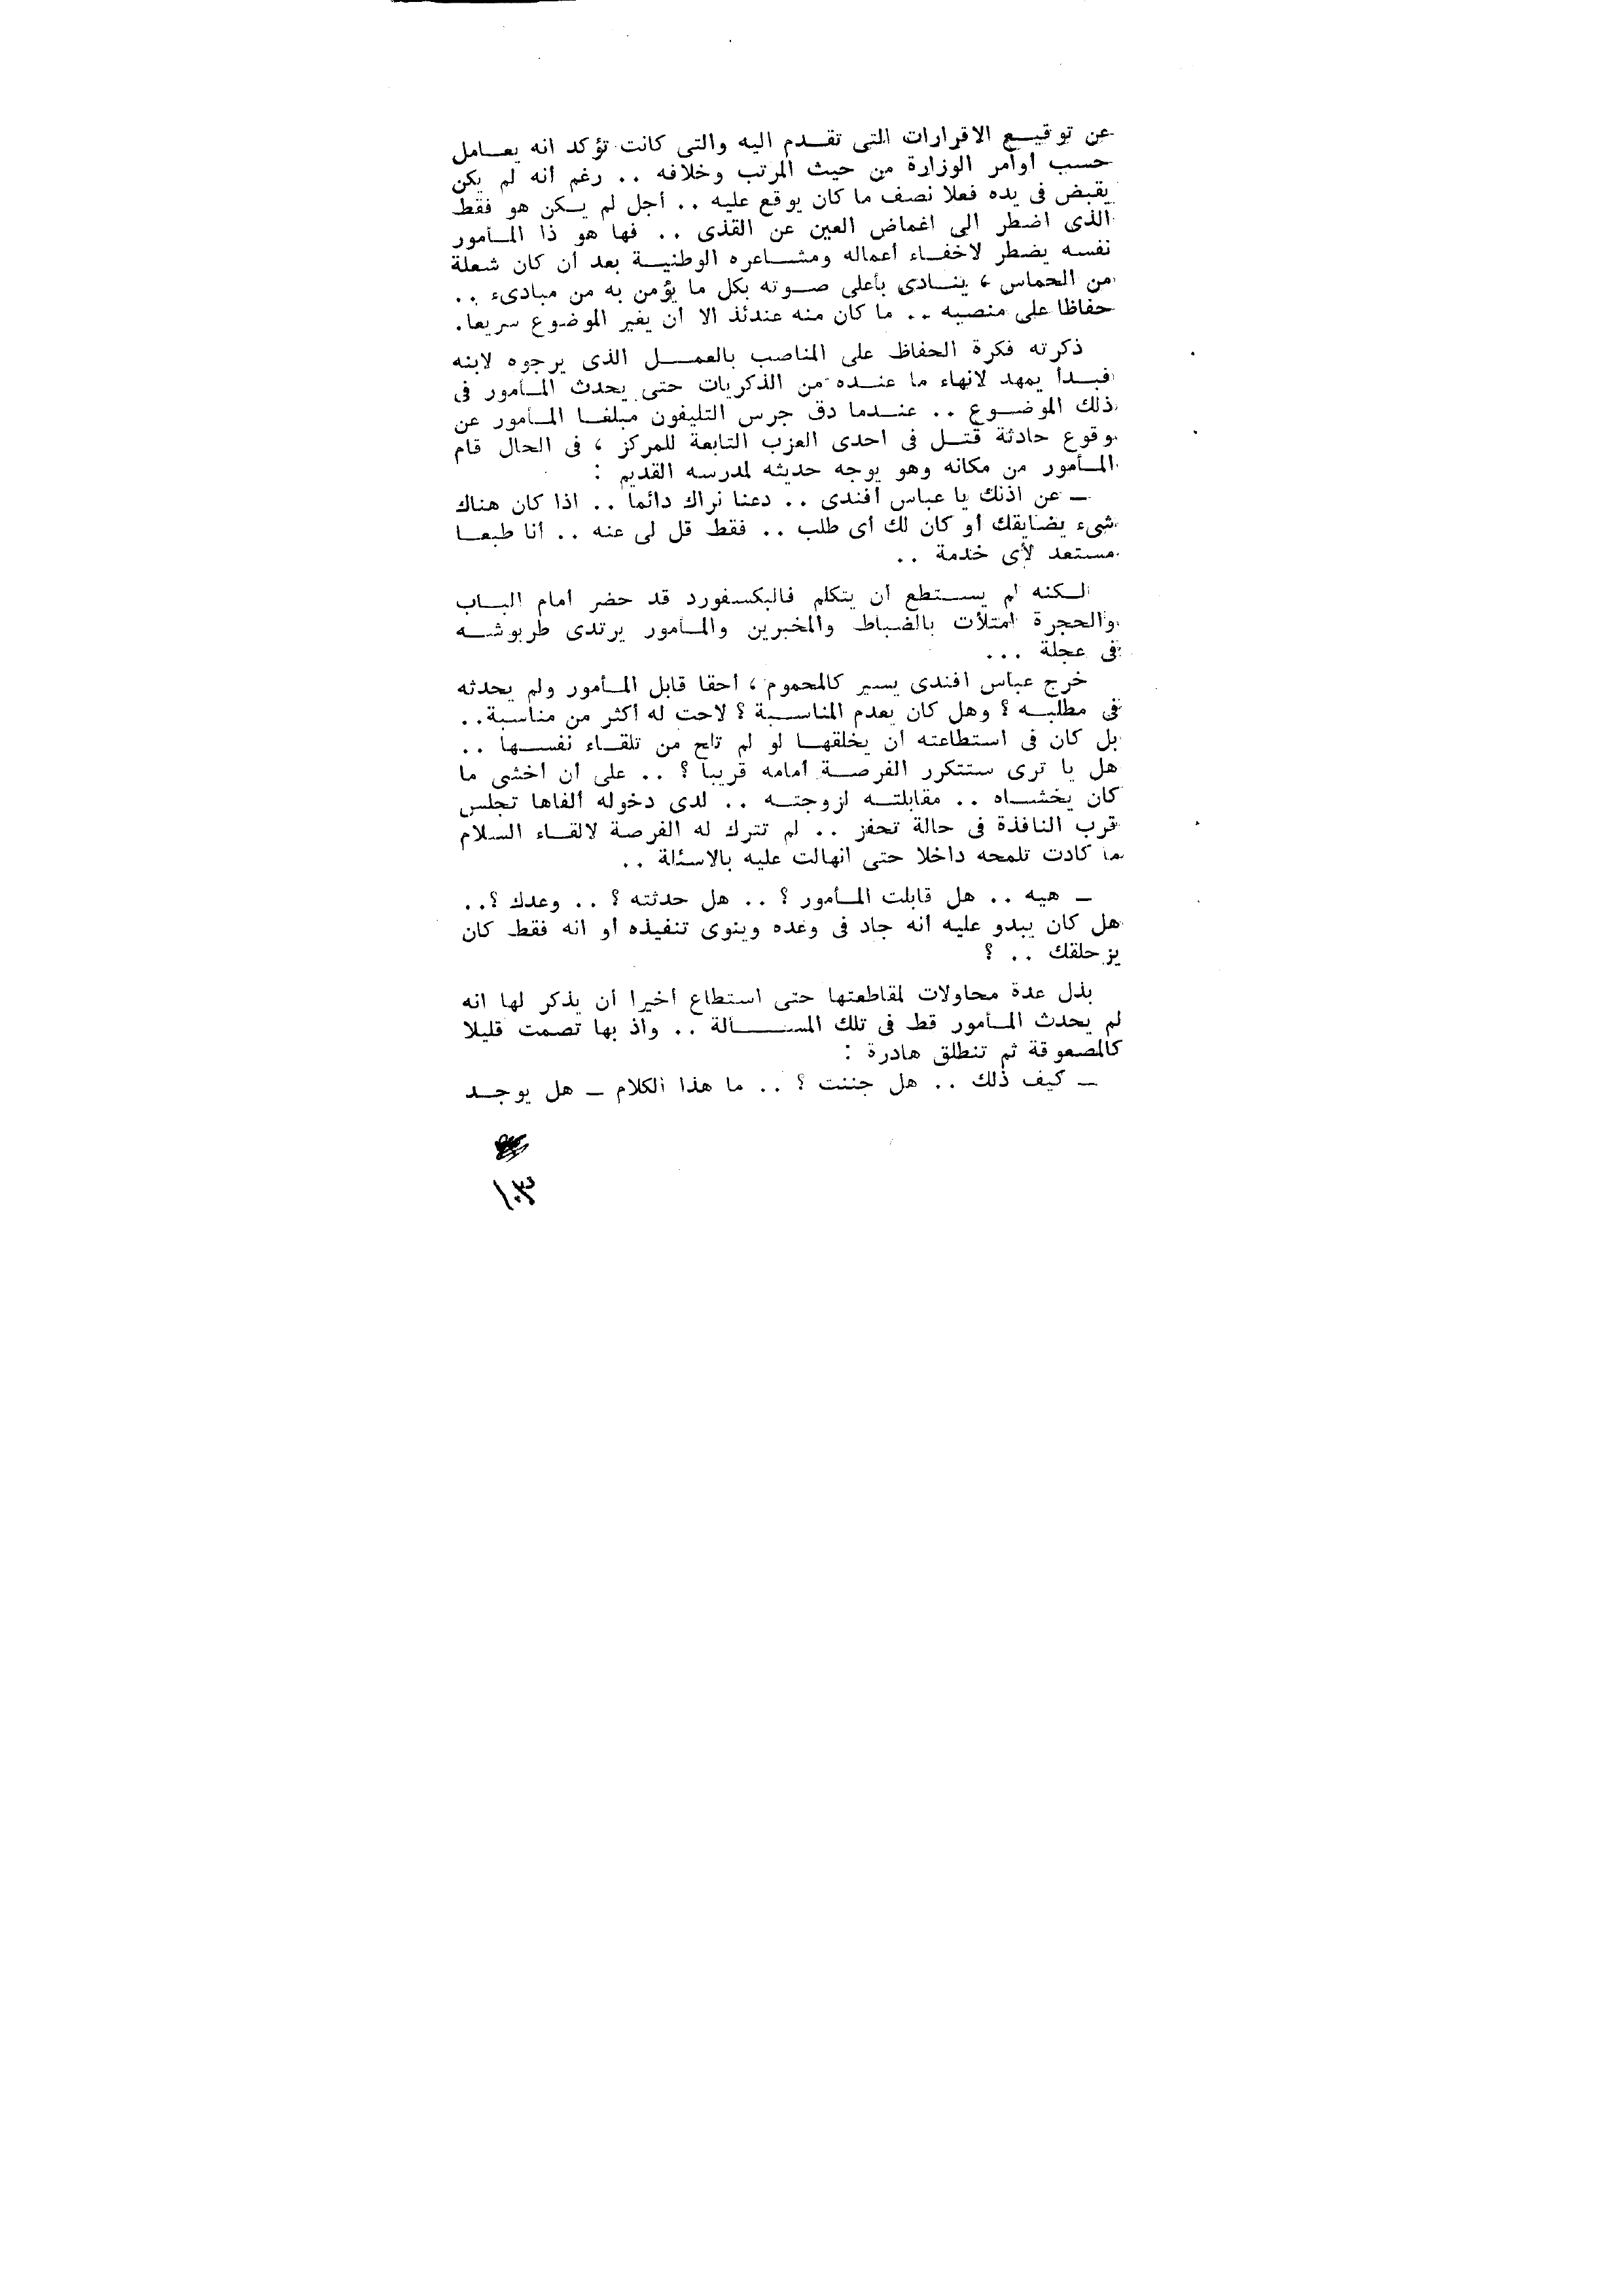 عن توقيع الاقرارات التى تقدم اليه والتى كانت تؤكد انه يعامل
حسب أوامر الوزارة من حيث المرتب وخلافه .. رغم أنه لم يكن
يقبض فى يده فعلا نصف ما كان يوقع عليه .. أجل لم يكن هو فقط
الذى اضطر الى اغماض العين عن القذى .. فها هو ذا المأمور
نفسه يضطر لاخفاء أعماله ومشاعره الوطنية بعد أن كان شعلة
من الحماس ، ينادى بأعلى صوته بكل ما يؤمن به من مبادىء ..
حفاظا على منصبه .. ما كان منه عندئذ الا أن يغير الموضوع سريعا.
ذكرته فكرة الحفاظ على المناصب بالعمل الذى يرجوه لابنه
فبدأ يمهد لانهاء ما عنده من الذكريات حتى يحدث المأمور فى
ذلك الموضوع .. عندما دق جرس التليفون مبلغا المأمور عن
وقوع حادثة قتل فى احدى العزب التابعة للمركز ، فى الحال قام
المأمور من مكانه وهو يوجه حديثه لمدرسه القديم :
ـ عن اذنك يا عباس أفندى .. دعنا نراك دائما .. اذا كان هناك
شىء يضايقك أو كان لك أى طلب .. فقط قل لى عنه .. أنا طبعا
مستعد لأى خدمة ..
لكنه لم يستطع أن يتكلم فالبكسفورد قد حضر أمام الباب
والحجرة امتلأت بالضباط والمخبرين والمأمور يرتدى طربوشه
فى عجلة ...
خرج عباس افندى يسير كالمحموم ، أحقا قابل المأمور ولم يحدثه
فى مطلبه ؟ وهل كان يعدم المناسبة ؟ لاحت له أكثر من مناسبة..
بل كان فى استطاعته أن يخلقها لو لم تلح من تلقاء نفسها ..
هل يا ترى ستتكرر الفرصة أمامه قريبا ؟ .. على أن أخشى ما
كان يخشاه .. مقابلته لزوجته .. لدى دخوله ألفاها تجلس
قرب النافذة فى حالة تحفز .. لم تترك له الفرصة لالقاء السلام
ما كادت تلمحه داخلا حتى انهالت عليه بالاسئلة ..
ـ هيه .. هل قابلت المأمور ؟ .. هل حدثته ؟ .. وعدك ؟..
هل كان يبدو عليه أنه جاد فى وعده وينوى تنفيذه أو انه فقط كان
يزحلقك .. ؟
بذل عدة محاولات لمقاطعتها حتى استطاع أخيرا أن يذكر لها انه
لم يحدث المأمور قط فى تلك المسألة .. واذ بها تصمت قليلا
كالمصعوقة ثم تنطلق هادرة :
ـ كيف ذلك .. هل جننت ؟ .. ما هذا الكلام ـ هل يوجد
١٠٣